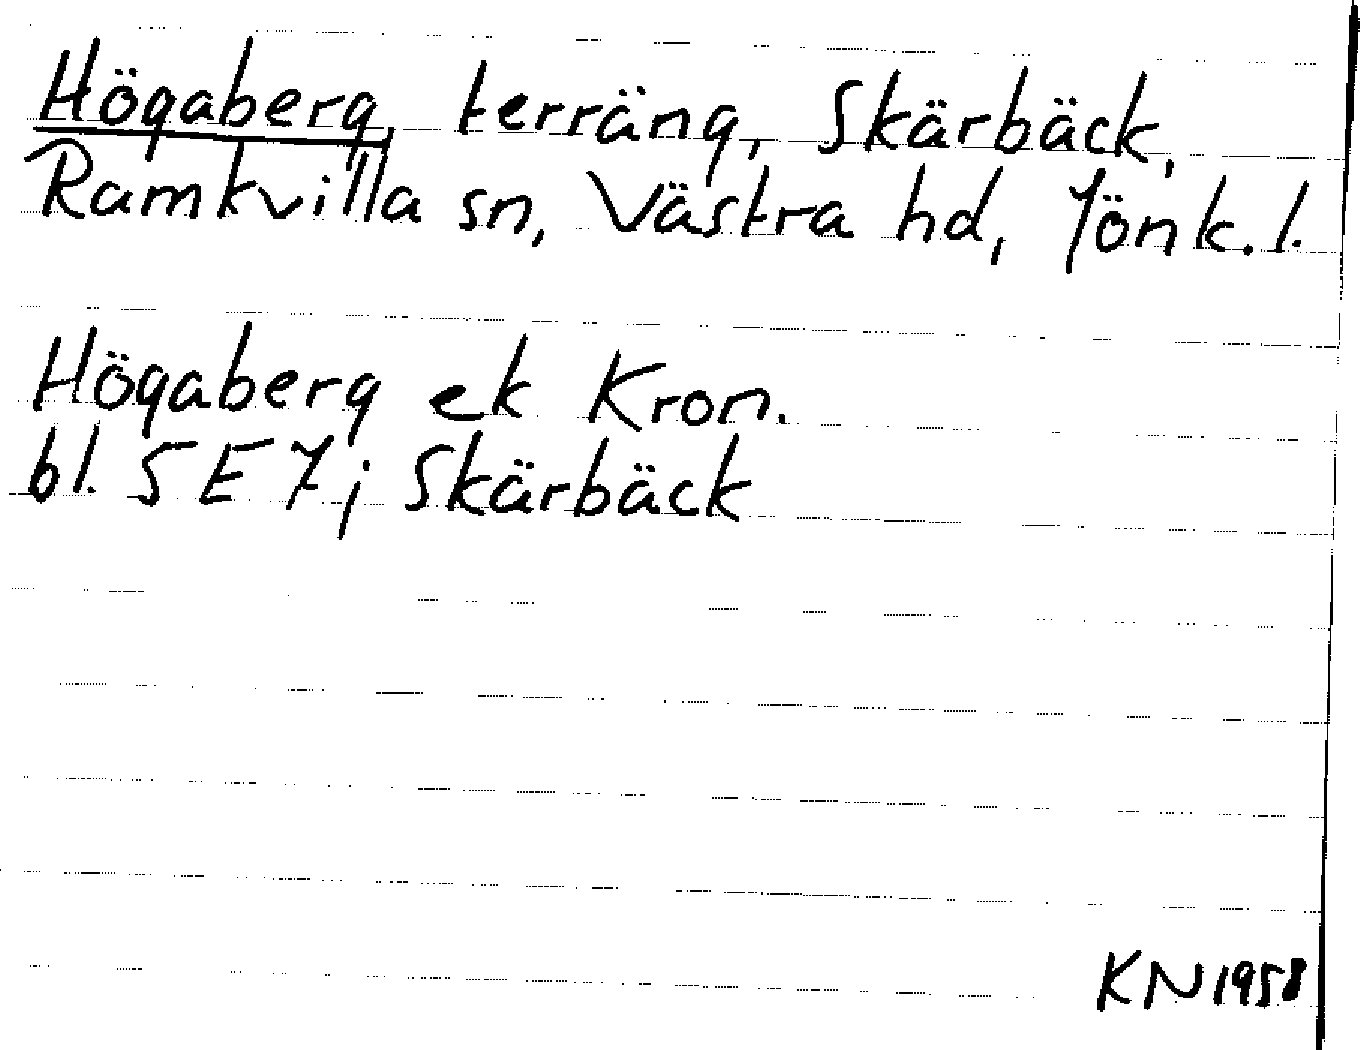 Högaberg, terräng, Skärbäck,
Ramkvilla sn, Västra hd, Jönk. l.
Högaberg ek Kron.
bl. 5 E 7; Skärbäck
KN 1958